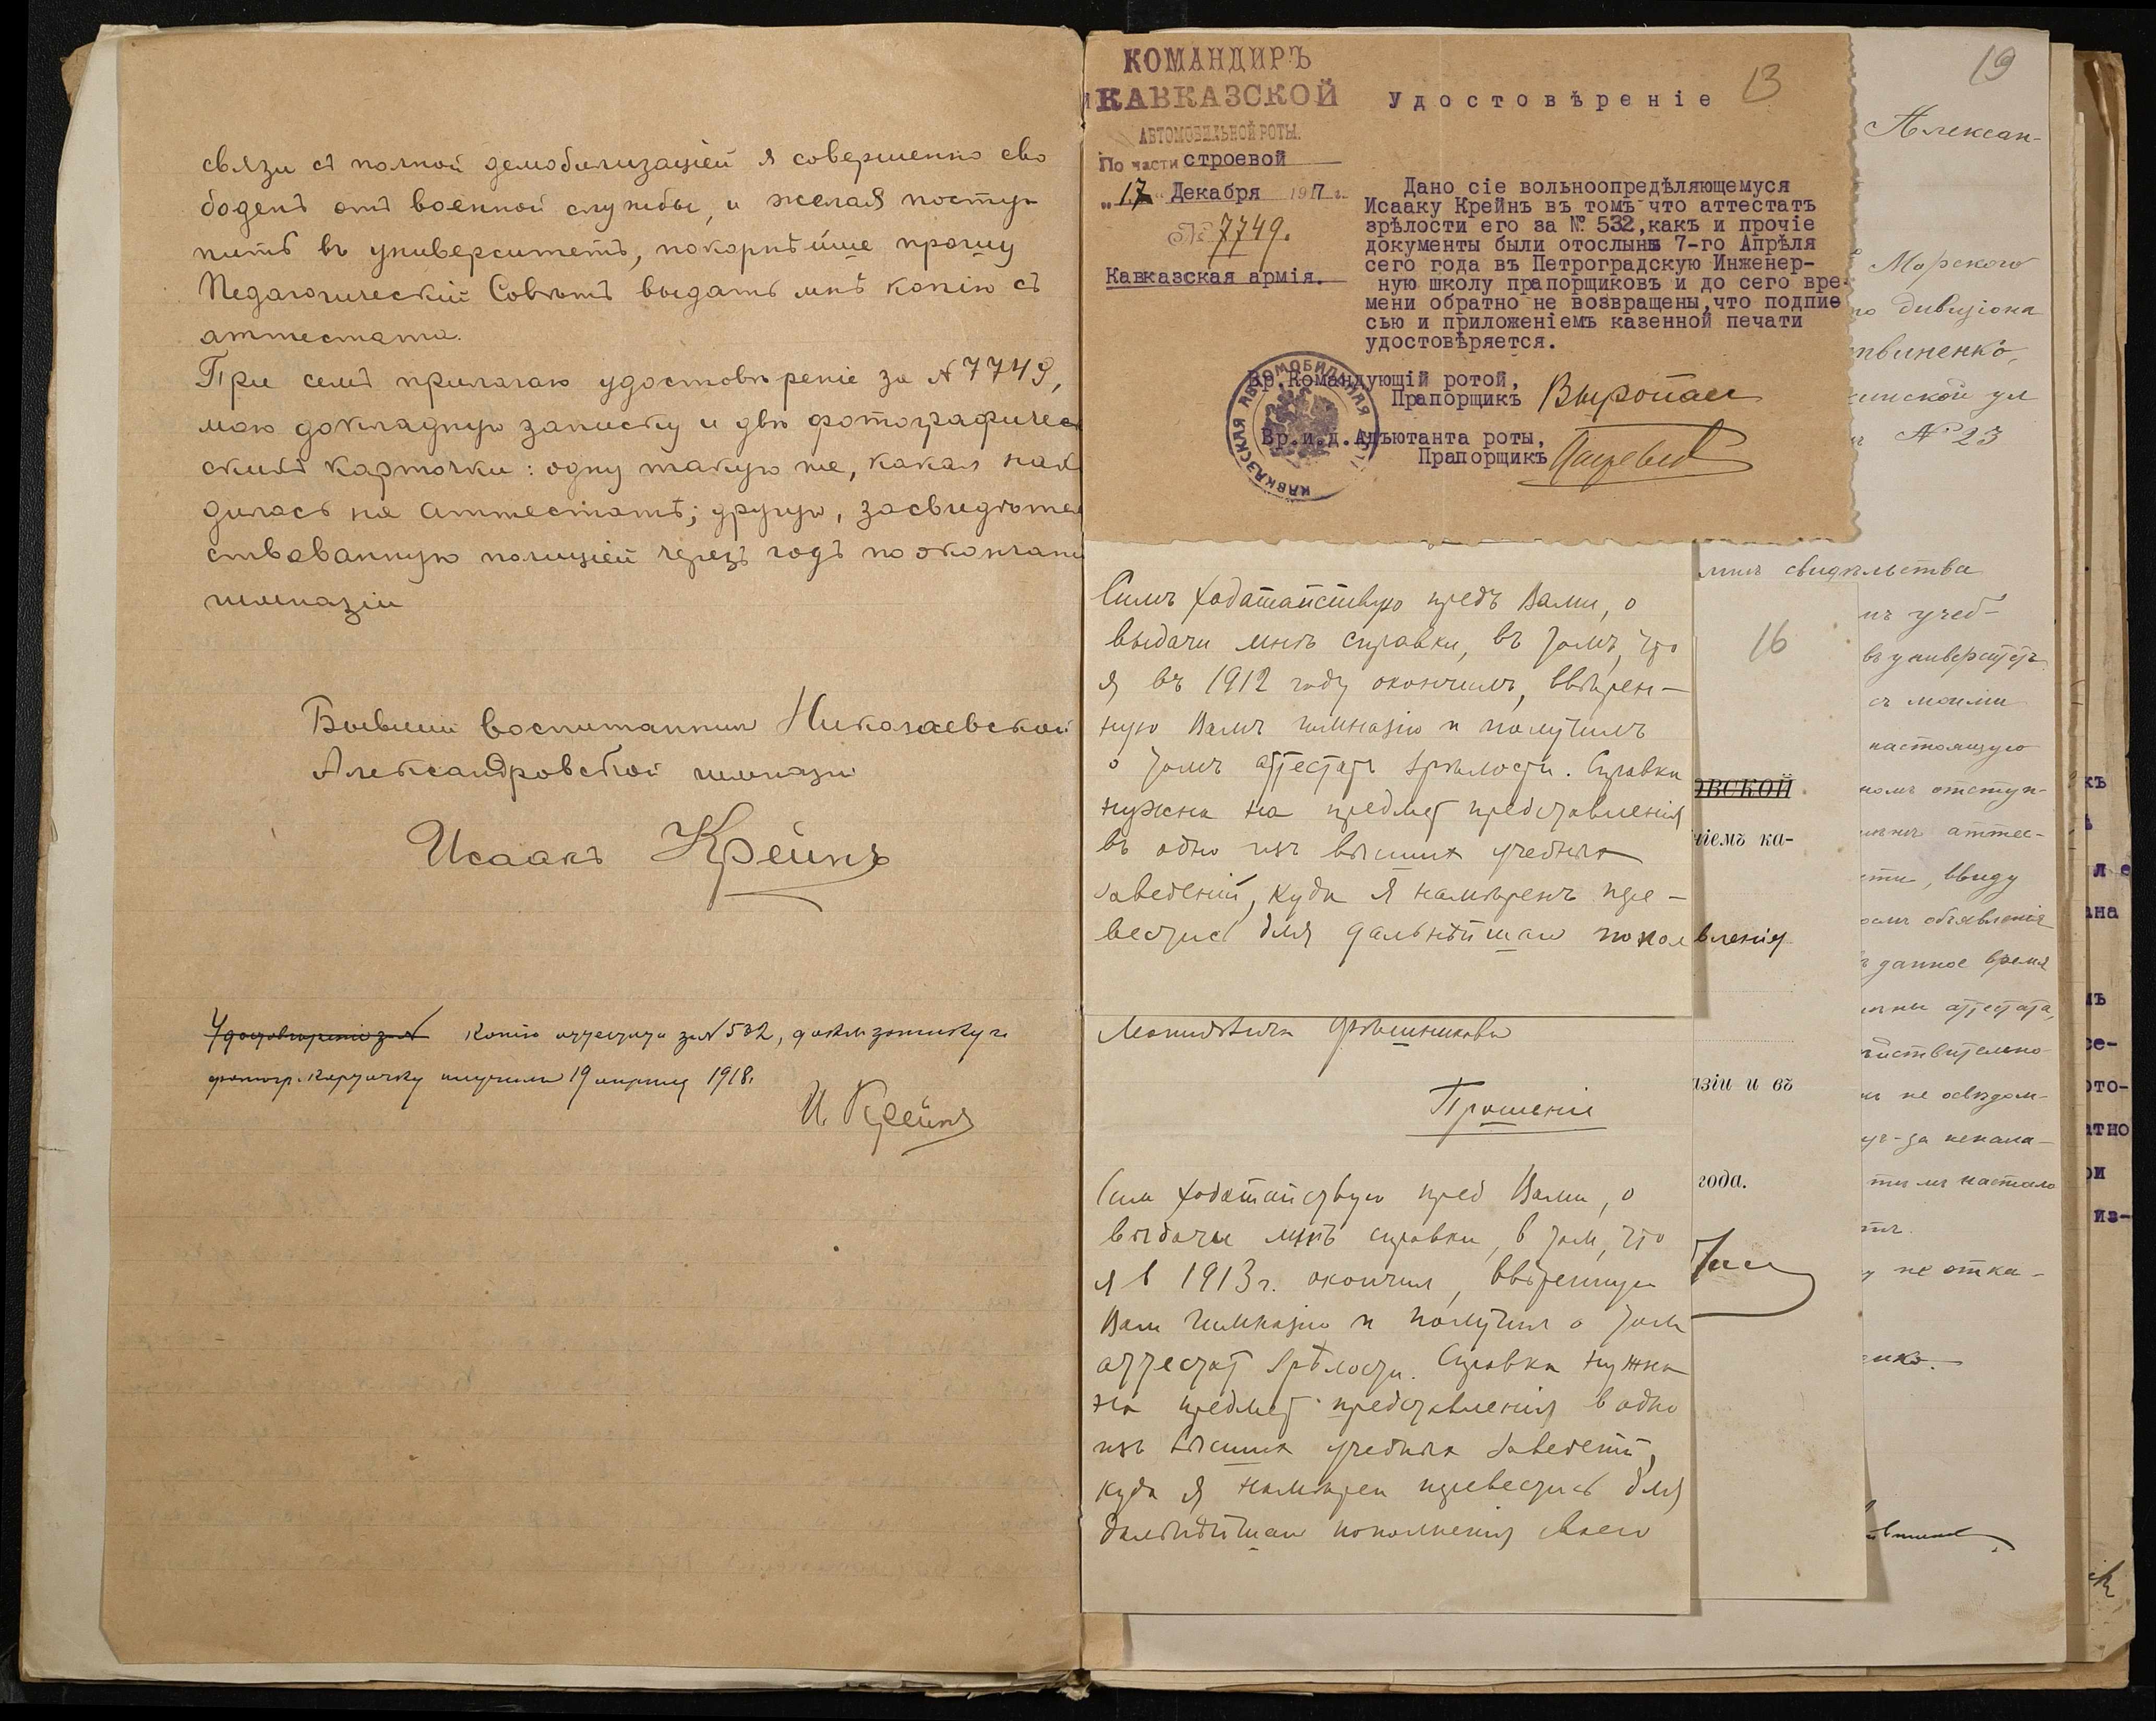 связи съ полной демобилизаціей я совершенно сво
боденъ отъ военной службы, и желая посту
пить въ университетъ, покорнѣйше прошу
Педагогическій Совѣтъ выдать мнѣ копію съ
аттестата.
При семъ прилагаю удостовѣреніе за № 7749,
мою докладную записку и двѣ фотографичес
скихъ карточки: одну такую же, какая нахо
дилась на аттестатѣ; другую, засвидѣтел
ствованную полиціей черезъ годъ по окончані
гимназіи
Бывшій воспитанник Николаевской
Александровской гимназіи
Исаакъ Крейнъ
Удостовѣреніе за № копію аттестата за № 532, докл. записку и
фотогр. карточку получилъ 19 апрѣля 1918.
И. Крейнъ
КОМАНДИРЪ
КАВКАЗСКОЙ
АВТОМОБИЛЬНОЙ РОТЫ.
По части строевой
"17" Декабря 1917 г.
№ 7749.
Кавказская армія.
13
Удостовѣреніе
Дано сіе вольноопредѣляющемуся
Исааку Крейнъ въ томъ что аттестатъ
зрѣлости его за № 532,какъ и прочіе
документы были отосланы 7-го Апрѣля
сего года въ Петроградскую Инженер-
ную школу прапорщиковъ и до сего вре-
мени обратно не возвращены,что подпи
сью и приложеніемъ казенной печати
удостовѣряется.
Вр.Командующій ротой,
Прапорщикъ
Вр.и.д.Адъютанта роты,
Прапорщикъ
КАВКАЗСКАЯ АВТОМОБИЛЬНАЯ
Симъ ходатайствую предъ Вами, о
выдачи мнѣ справки, въ томъ, что
я въ 1912 году окончилъ, ввѣрен-
ную Вамъ гимназію и получилъ
о томъ аттестатъ зрѣлости. Справка
нужна на предмет представленія
въ одно изъ высших учебных
заведеній, куда я намѣренъ пере-
вестись для дальнѣйшаго попол
Прошеніе
Сим ходатайствую пред Вами, о
выдачи мнѣ справки, в том, что
я в 1913 г. окончил, ввѣренную
Вам гимназію и получил о том
аттестат зрѣлости. Справка нужна
на предмет представленія в одно
изъ высших учебных заведеній,
куда я намѣрен перевестись для
дальнѣйшаго пополненія своего
свидѣльства
16
ОВСКОЙ
ніемъ ка-
вленія
азіи и въ
года.
19
Алексан-
Морского
го дивизіона
твиненко,
инской ул
№ 23
учеб-
въ университетъ
съ моими
настоящую
номъ отступ-
аттес-
сти, ввиду
объявленія
данное время
аттестата,
йствительно
не освѣдом-
-за некала-
настало
не отка-
енко.
къ
л е
ана
мъ
се-
ото-
атно
ри
из-